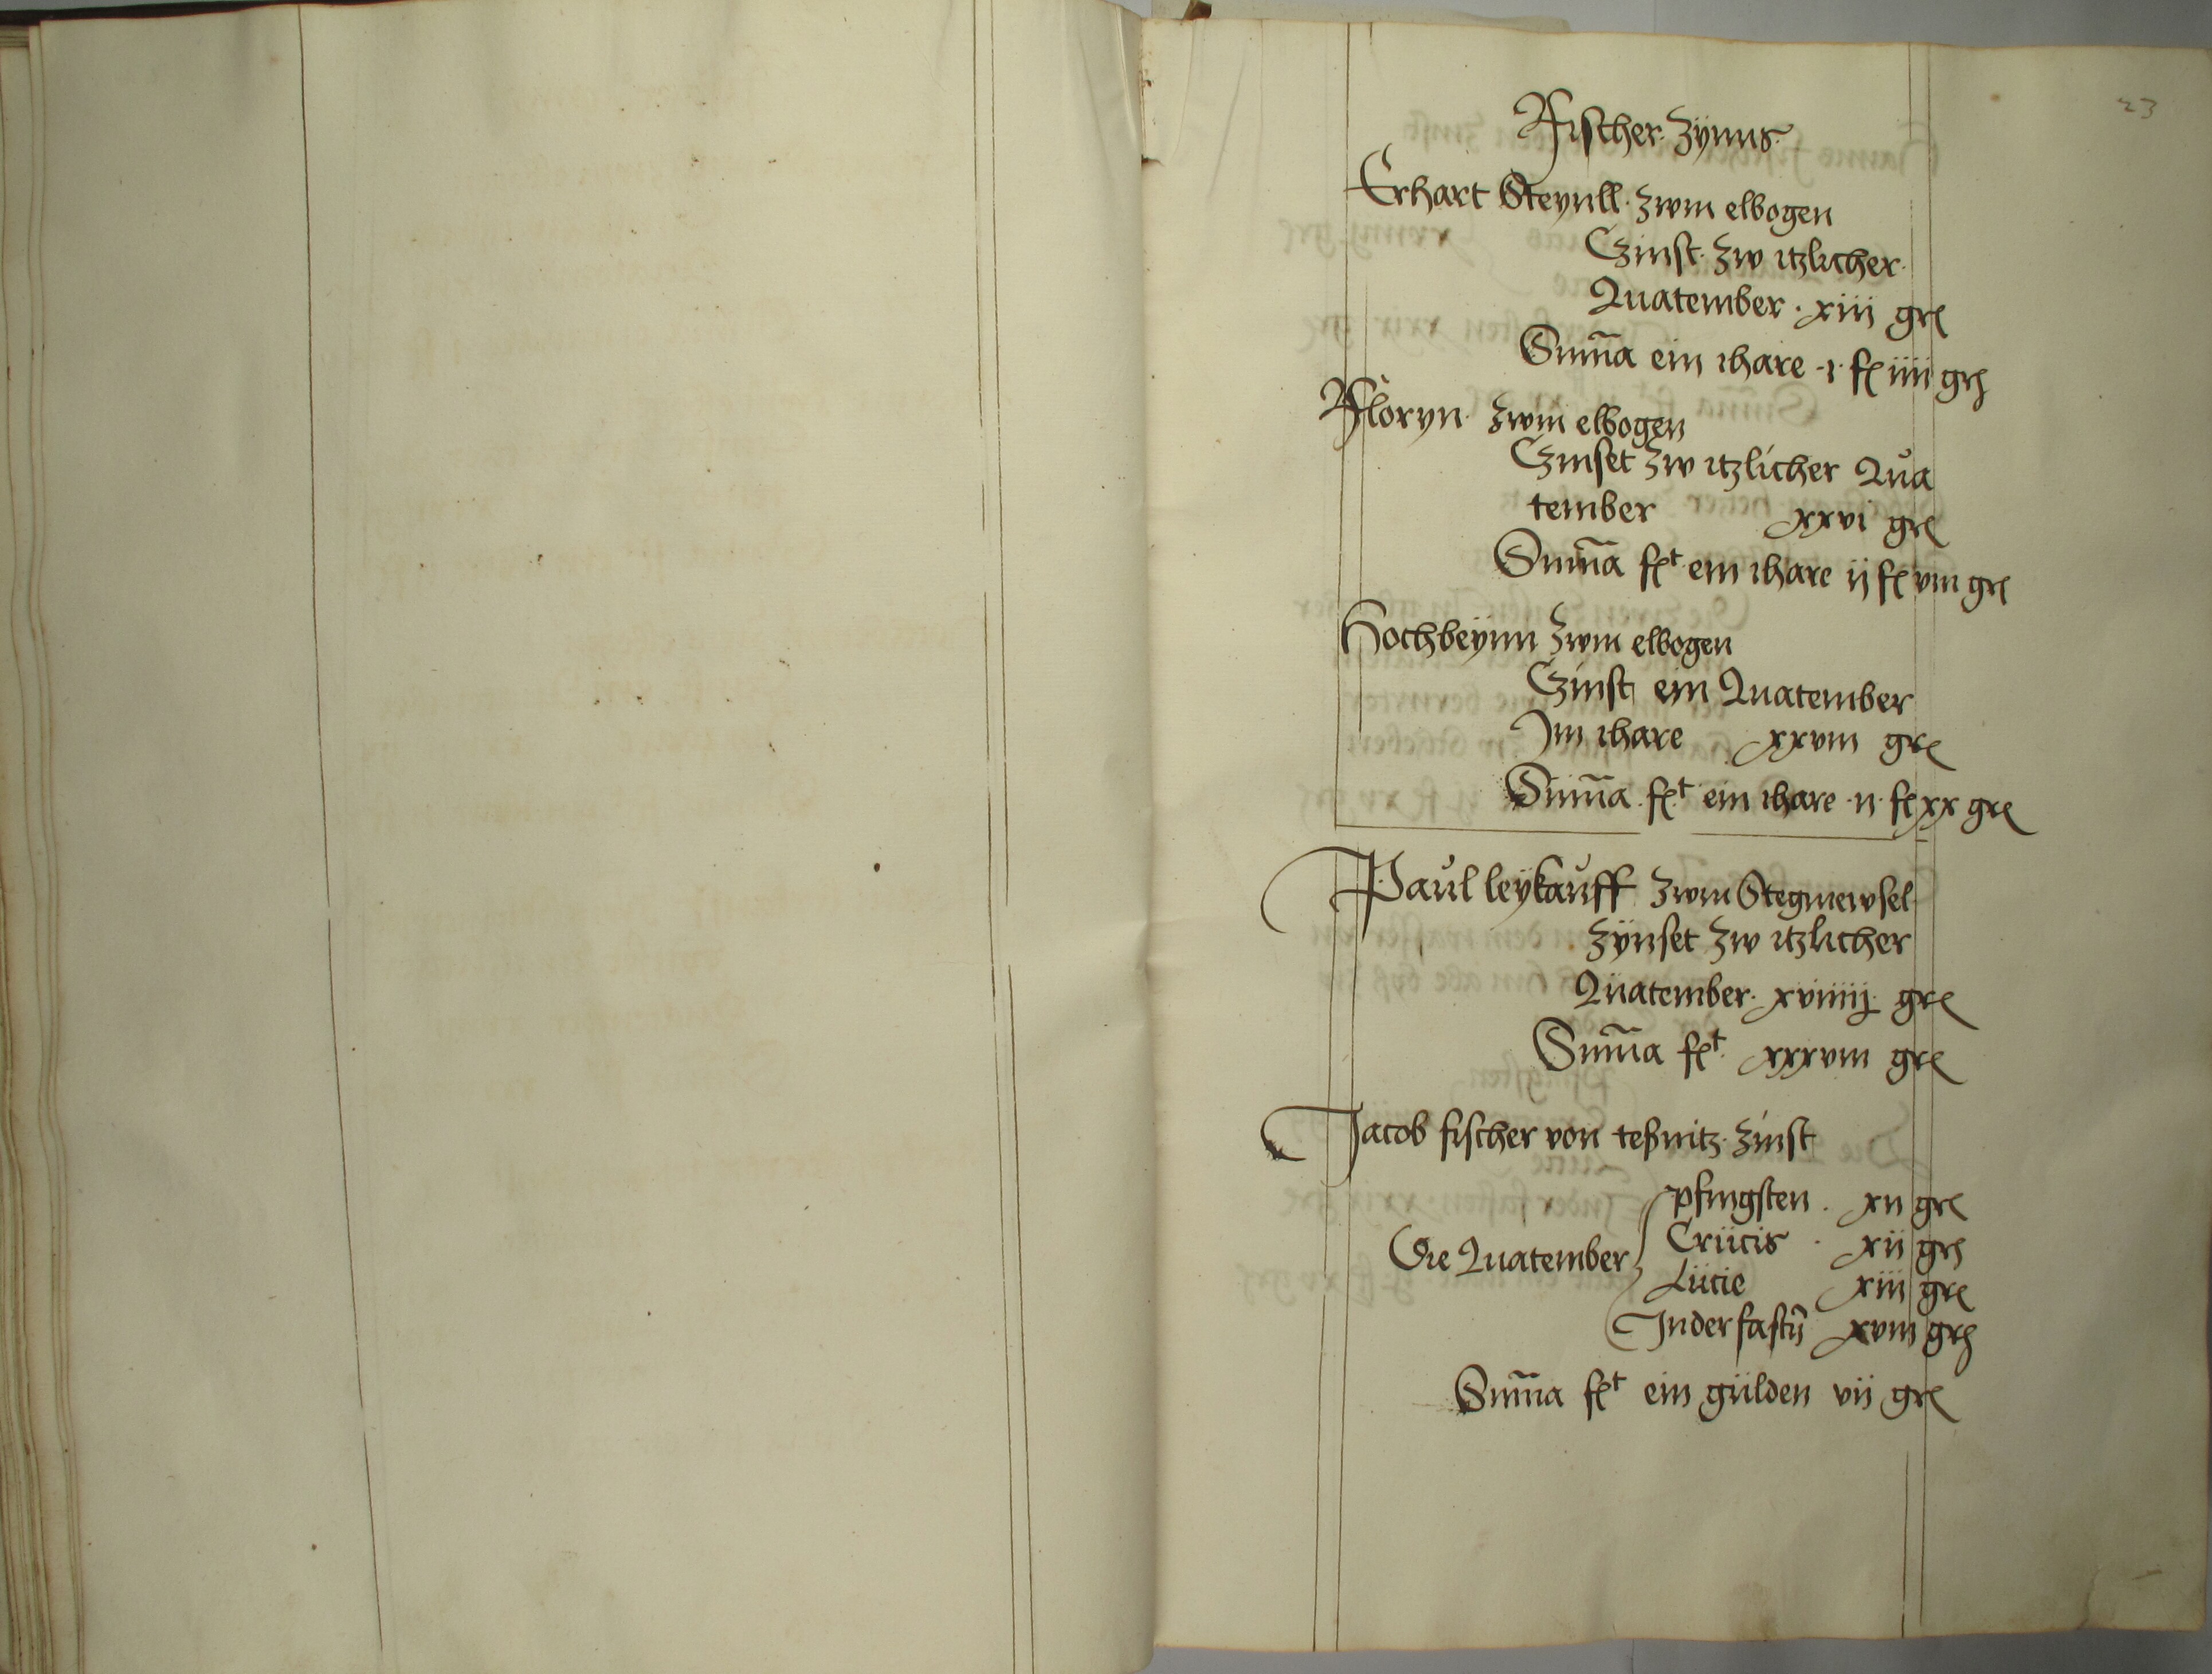 23
Fischer Zÿnns
Erhart Steynll zwm elbogen
Czinst zw itzlicher
Quatember xiii gr
Suma ein ihare i ß iiii gr
Floryn zwm elbogen
Czinset zw itzlicher Qua
tember xxvi gr
Suma fct ein ihare ij ß viii gr
Hochbeynn zwm elbogen
Czinst ein Quatember
Im ihare xxviii gr
Suma fct ein ihare ii ß xx gr
Paul leykauff zwm Stegmewsel
zÿnset zw itzlicher
Quatember gr
Suma fct xxxviii gr
Jacob fischer von teßnitz zinst
Die Quatember
pfingsten xii gr
Crucis xii gr
Lucie xiii gr
In der fastñ xviii gr
Suma fct ein gulden vii gr